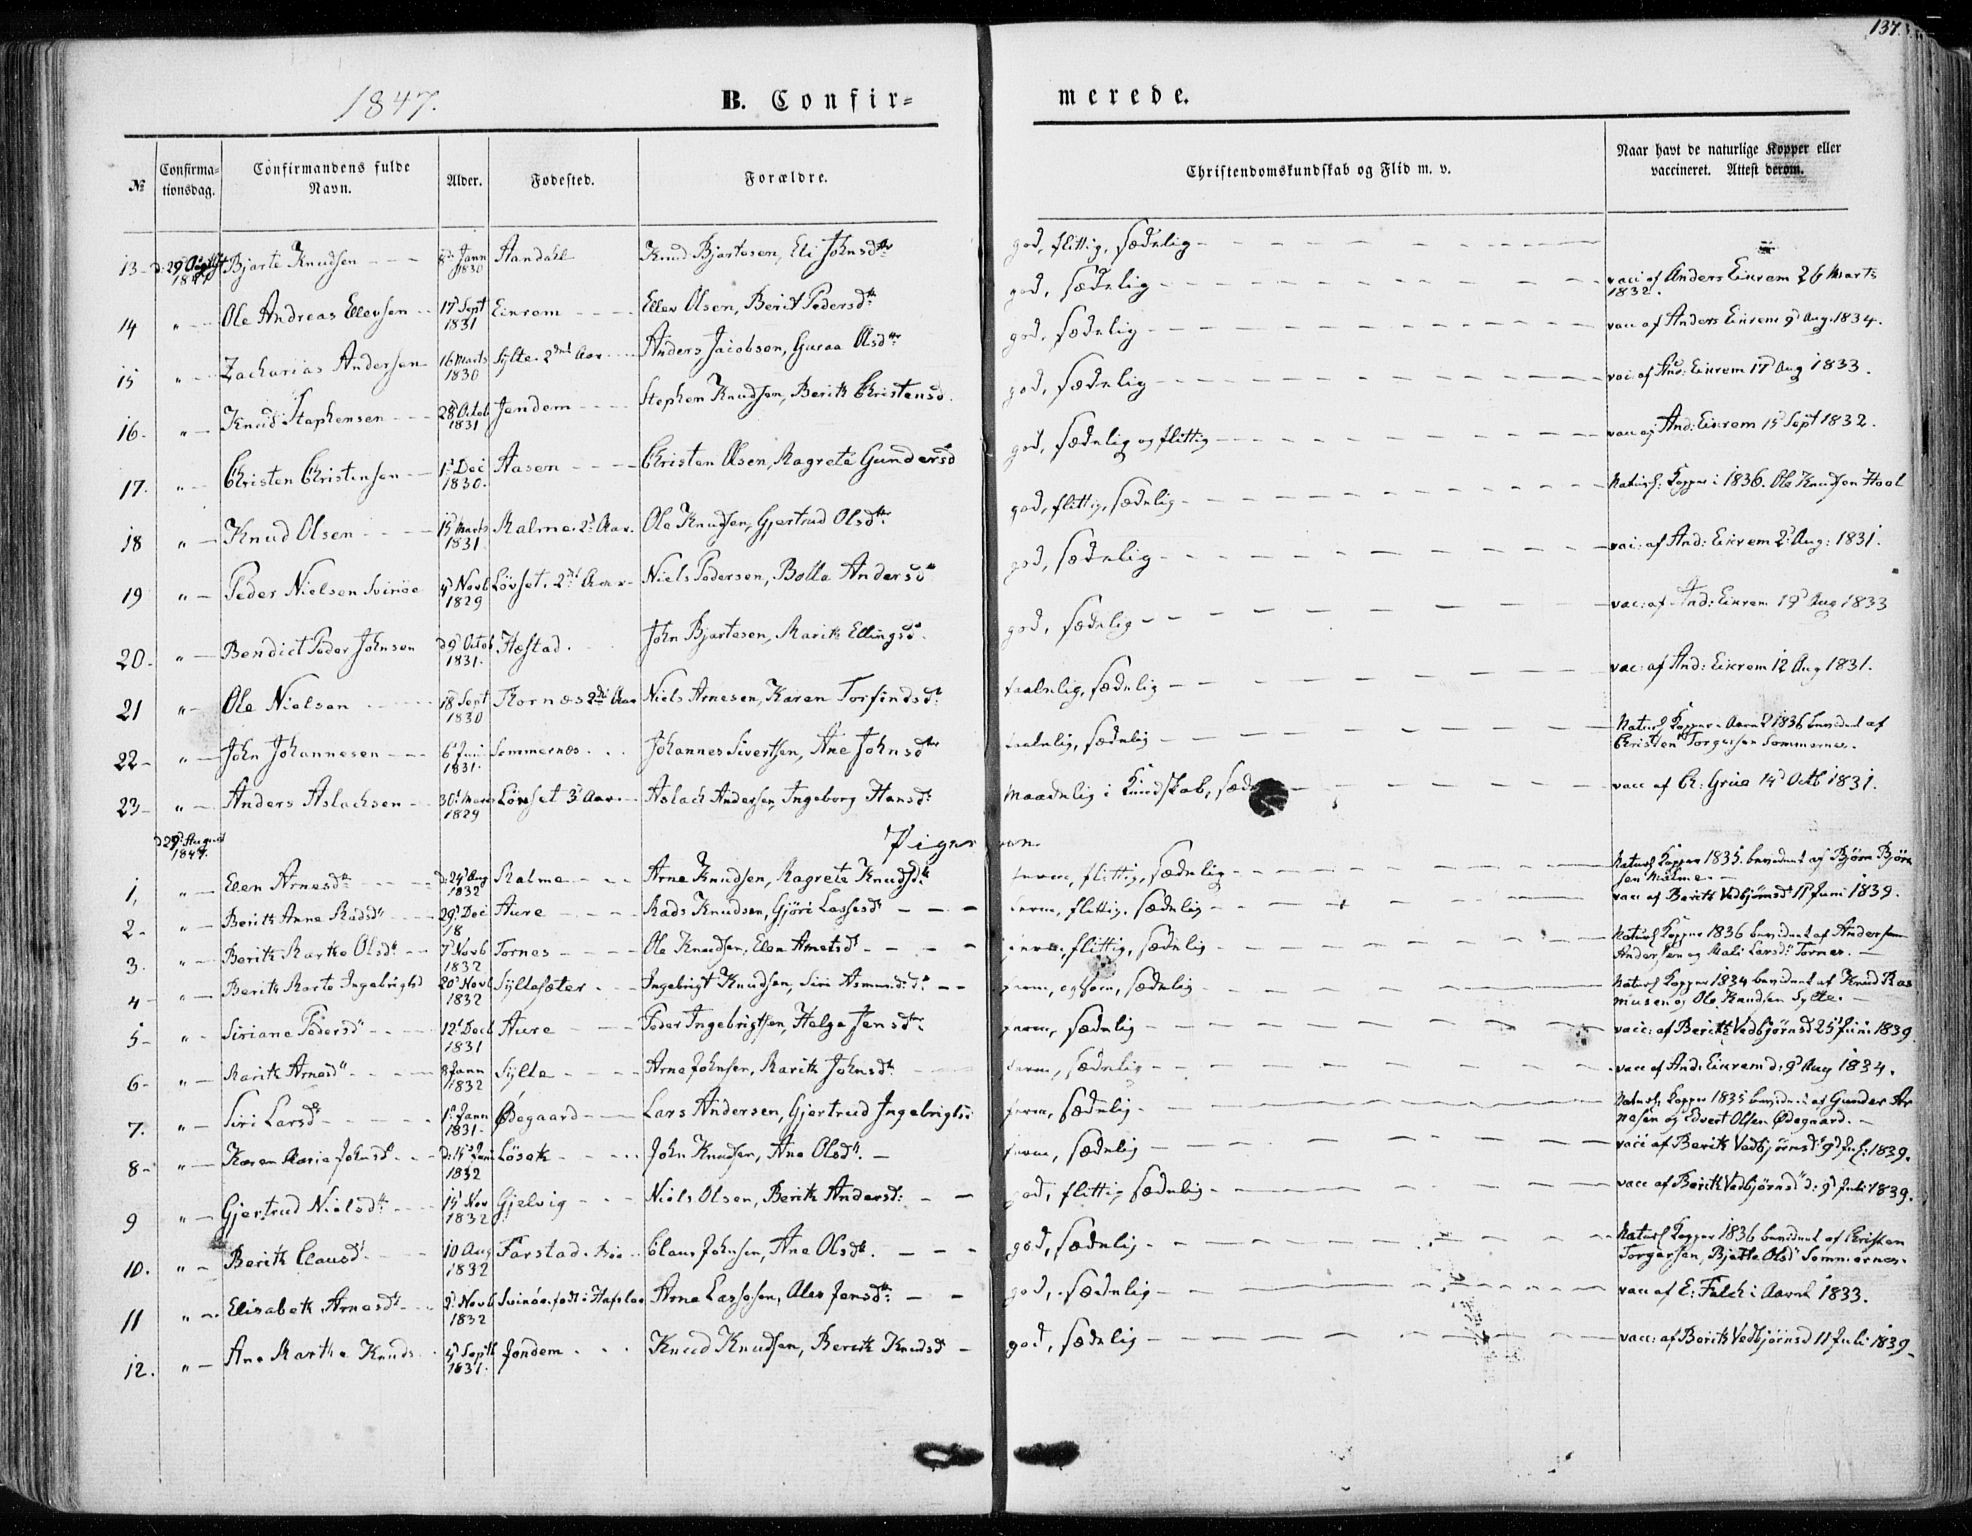 137.
1847.
B. Confir= merede.
№ Confirma-tionsdag. Confirmandens fulde Navn. Alder. Fødested. Forældre. Christendomskundskab og Flid m. v. Naar havt de naturlige Kopper eller vaccineret. Attest derom.
13 d: 29 August 1847 Bjarte Knudsen 8d Jann 1830 Aandahl Knud Bjartesen, Eli Johnsdtr god, flittig, sædelig
vacc af Anders Eikrem 26 Marts 1832.
14 " Ole Andreas Ellevsen 17d Sept 1831 Eikrem Ellev Olsen, Berit Pedersdtr god, sædelig
vacc af Anders Eikrem 9d Aug. 1834.
15 " Zacharias Andersen 16 Marts 1830 Sylte 2det Aar Anders Jacobsen, Guroa Olsdtr god, sædelig
vac: af And: Eikrem 17d Aug 1833.
16. " Knud Stephensen 28d Octob 1831 Jendem Stephen Knudsen, Berith Christensd. god, sædelig
vacc af And: Eikrem 15d Sept 1832.
17. " Christen Christensen 1d Dec 1830. Aasen Christen Olsen, Magrete Gundersd god, sædelig og flittig
Naturl: Kopper i 1836. Ole Knudsen Hool
18 " Knud Olsen 15d Marts 1831 Malme. 2d Aar. Ole Knudsen, Gjertrud Olsdtr god, flittig, sædelig
vac: af And: Eikrem 2d Aug: 1831.
19 " Peder Nielsen Svinøe 4d Novb 1829 Løvset. 2det Aar Niels Pedersen, Bolla Andersdtr god, sædelig
vac: af And: Eikrem 19d Aug 1833
20. " Bendict Peder Johnsen d 9d Octob 1831. Hæstad. John Bjartesen, Marith Ellingsd. god, sædelig
vac: af And: Eikrem 12 Aug 1831.
21 " Ole Nielsen 18d Sept 1830 Kornæs 2det Aar Niels Arnesen, Karen Torfindsd: taalelig, sædelig
Naturl Kopper i Aaret 1836 bevidnet af Christen Torgersen Sommernes.
22 " John Johannesen 6d Juni 1831. Sommernæs. Johannes Sivertsen, Ane Johnsdtr taalelig, sædelig
vacc af Cl: Grüe 14d Octb 1831.
23 " Anders Aslachsen 30d Marts 1829 Løvset 3d Aar. Aslach Andersen, Ingeborg Hansd: Maadelig i Kundskab, sæd
d 29d August 1847. Piger
1, " Elen Arnesdtr d: 24d Aug 1832 Malme Arne Knudsen, Magrete Knudsdtr flittig, sædelig
Naturl Kopper 1835. bevidnet af Bjørn Bjørnsen Malme.
2. " Berith Anne Madsdtr 29d Dec 18 Aure Mads Knudsen, Gjøri Lassesdtr flittig. sædelig
vacc af Berith Vedbjørnsd 11d Juni 1839.
3. " Berith Marthe Olsdtr 7d Novb 1832 Tornes Ole Knudsen, Elen Ametsdtr flittig, sædelig
Naturl Kopper 1836 bevidnet af Anders Andersen og Mali Larsdtr Tornes.
4 " Berith Marte Ingebrigtsd 20d Novb 1832 Syltesæter Ingebrigt Knudsen, Siri Asmundsdtr sædelig
Naturl Kopper 1834 bevidnet af Knud Rasmusen og Ole Knudsen Sylte.
5 " Siriane Pedersdtr 12d Decb 1831 Aure Peder Ingebrigtsen, Helge Jensdtr sædelig
vacc: af Berith Vedbjørnsd 25d Juni 1839
6 " Marith Arnesdtr 8 Jann 1832 Sylte Arne Johnsen, Marith Johnsdtr sædelig
vacc af And: Eikrem d: 9d Aug 1834.
7. " Siri Larsdtr 1d Jann 1831. Ødegaard Lars Andersen, Gjertrud Ingebrigtsd sædelig
Naturl. Kopper 1835 bevidnet af Gunder Arnesen og Edvert Olsen Ødegaard.
8 " Karen Marie Johnsdtr 1832 Løsek John Knudsen, Ane Olsdtr. sædelig
vacc af Berith Vedbjørnsdtr 9d Juli 1839.
9 " Gjertrud Nielsdtr 15d Nov 1832 Gjelvig Niels Olsen, Berith Andersd: god, flittig sædelig
vacc af Berith Vedbjørnsdtr d: 9d Juli 1839.
10. " Berith Clausdtr 10 Aug 1832 Farstad. Claus Johnsen, Ane Olsdtr. god, sædelig
Naturl Kopper 1836 bevidnet af Christen Torgersen, Olsdtr Sommernes.
11 " Elisabeth Arnesdtr 2d Novb 1832 Svinøe født i Hafsloe Arne Lassesen, Jensdtr. god, sædelig
vacc af E: Falch i Aaret 1833.
12. " Ane Marthe Knuds 4d Septb 1831. Jendem. Knud Knudsen, Berith Knudsd god, sædelig
vacc: af Berith Vedbjørnsd 11 Juli 1839